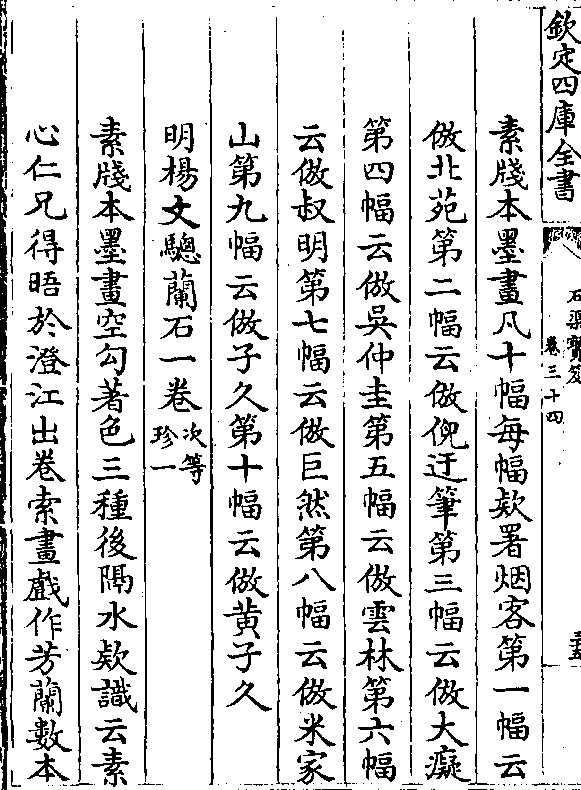 欽定四庫全書
石渠寶笈
卷三十四
素牋本墨畫凡十幅每幅欵署烟客第一幅云
倣北苑第二幅云倣倪迂筆第三幅云倣大癡
第四幅云倣吳仲圭第五幅云倣雲林第六幅
云倣叔明第七幅云倣巨然第八幅云倣米家
山第九幅云倣子久第十幅云倣黄子久
明楊文驄蘭石一卷次等珍一
素牋本墨畫空勾著色三種後隔水欵識云素
心仁兄得晤於澄江出卷索畫戲作芳蘭數本